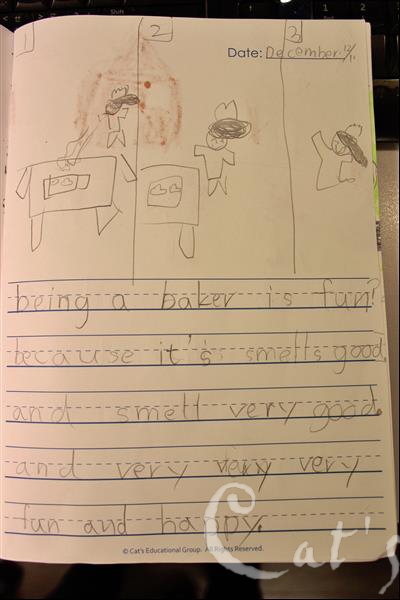 1 2 3
Date: December 12/11
being a baker is fun!
because it's smells good.
and smell very good.
and very very very
fun and happy.
© Cat's Educational Group. All Rights Reserved.
Cat's